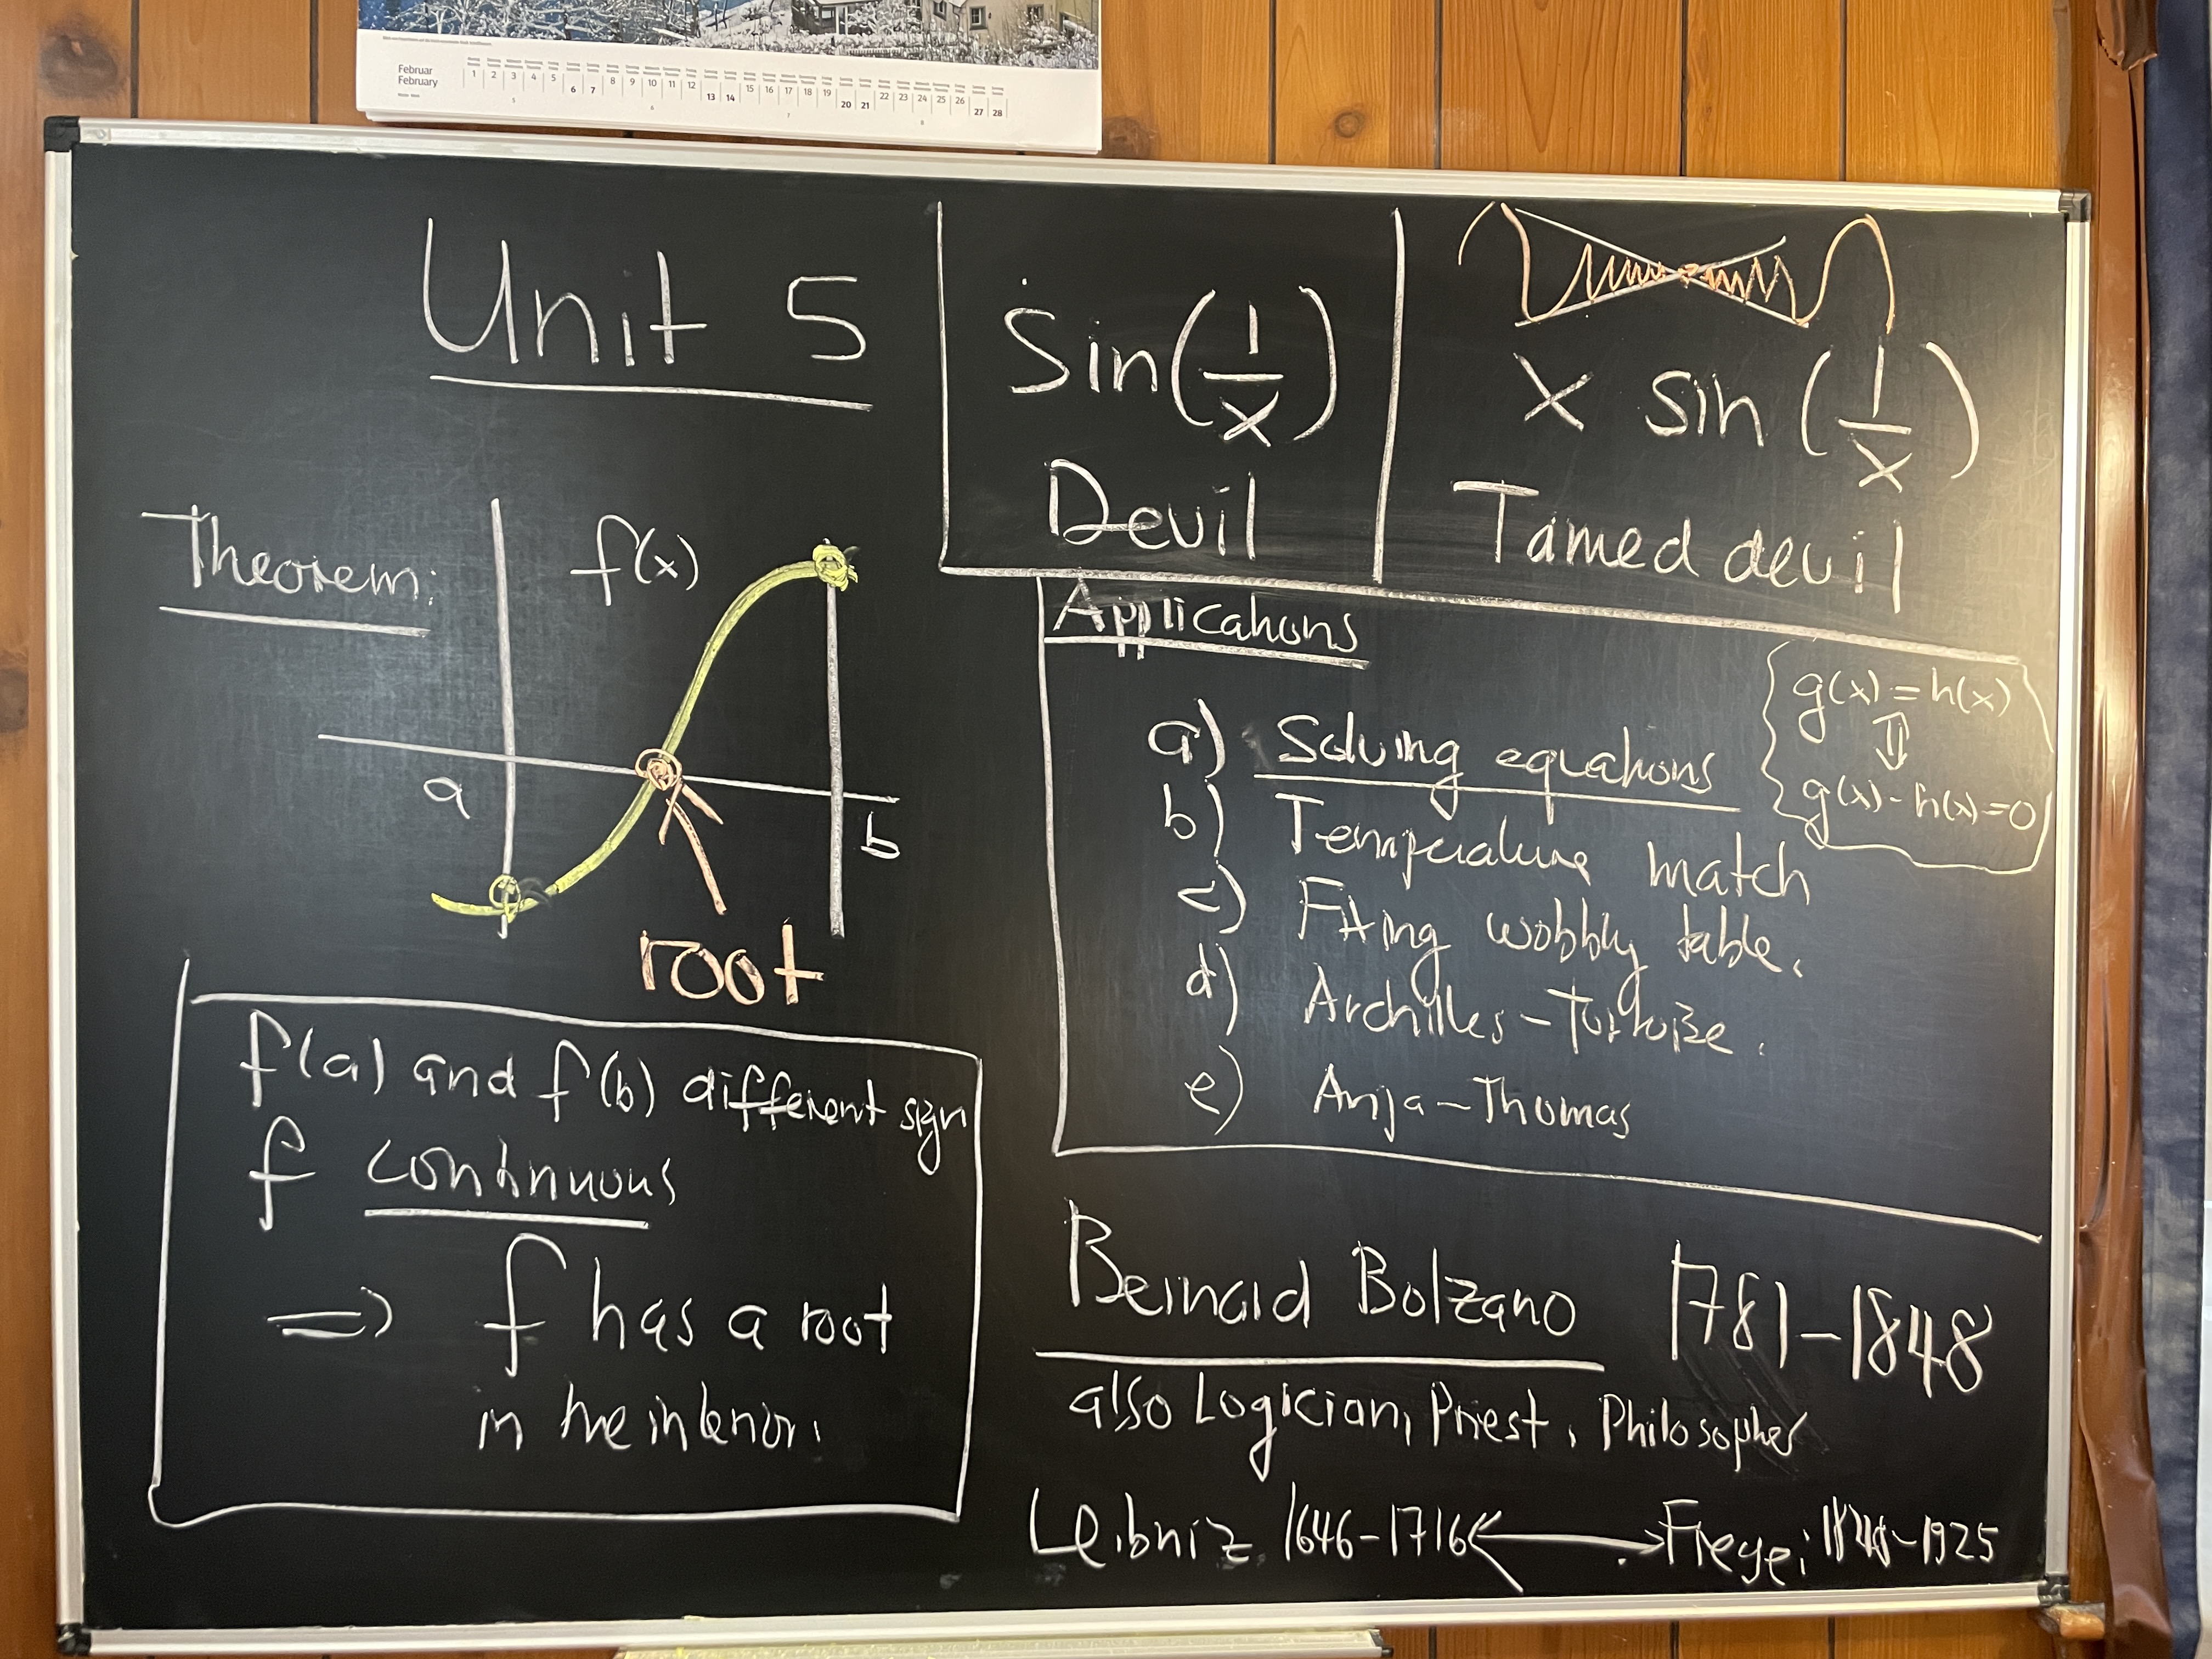 Februar
February
1 2 3 4 5 6 7 8 9 10 11 12 13 14 15 16 17 18 19 20 21 22 23 24 25 26 27 28
5 6 7 8
Unit 5
Sin(1/x)
Devil
x sin(1/x)
Tamed devil
Theorem:
f(x)
a
b
root
f(a) and f(b) different sign
f continuous
⇒ f has a root
in the interior.
Applications
a) Solving equations
g(x) = h(x)
⇕
g(x) - h(x) = 0
b) Temperature match
c) Fixing wobbly table.
d) Archilles - Tortoise.
e) Anja - Thomas
Bernard Bolzano 1781-1848
also Logician, Priest, Philosopher
Leibniz 1646-1716 ↔ Frege: 1848-1925